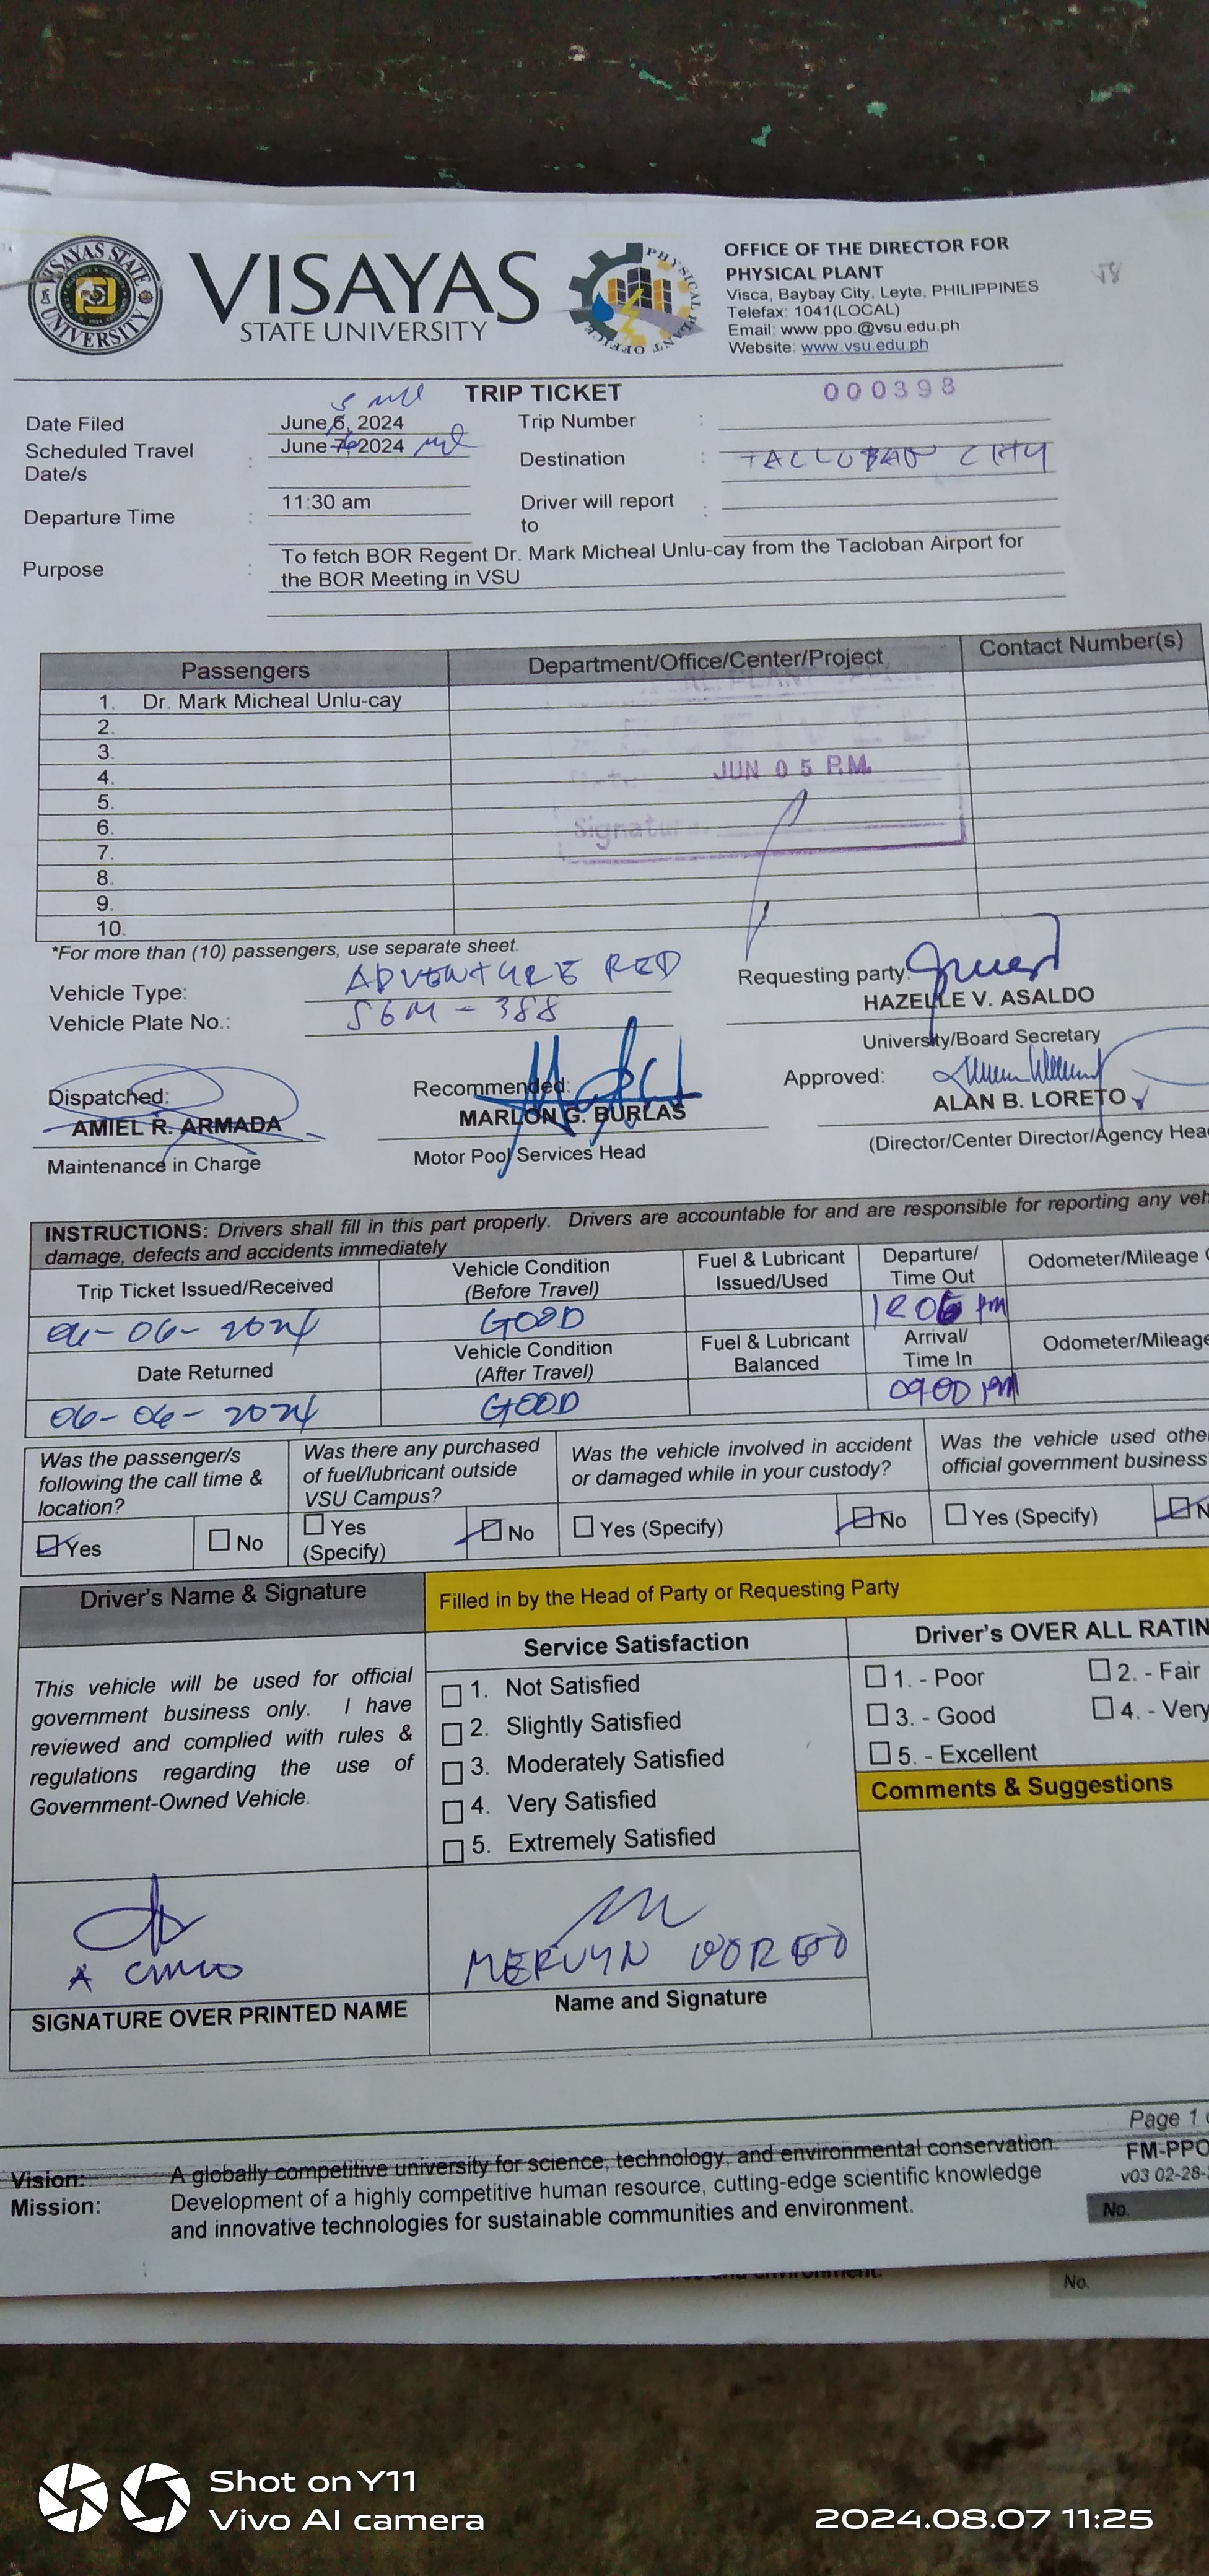 VISAYAS STATE UNIVERSITY
VISAYAS
STATE UNIVERSITY
PHYSICAL PLANT OFFICE
OFFICE OF THE DIRECTOR FOR
PHYSICAL PLANT
Visca, Baybay City, Leyte, PHILIPPINES
Telefax: 1041(LOCAL)
Email: www.ppo.@vsu.edu.ph
Website: www.vsu.edu.ph
TRIP TICKET
000398
Date Filed June 6, 2024 5
Trip Number :
Scheduled Travel Date/s : June 7, 2024 6
Destination : TACLOBAN CITY
Departure Time : 11:30 am
Driver will report to :
Purpose : To fetch BOR Regent Dr. Mark Micheal Unlu-cay from the Tacloban Airport for
the BOR Meeting in VSU
Passengers Department/Office/Center/Project Contact Number(s)
1. Dr. Mark Micheal Unlu-cay
2.
3.
4.
JUN 05 P.M.
5.
6.
Signatur
7.
8.
9.
10.
*For more than (10) passengers, use separate sheet.
Vehicle Type: ADVENTURE RED
Vehicle Plate No.: S6M-388
Requesting party:
HAZELLE V. ASALDO
University/Board Secretary
Dispatched: Recommended: Approved:
AMIEL R. ARMADA MARLON G. BURLAS ALAN B. LORETO
Maintenance in Charge Motor Pool Services Head (Director/Center Director/Agency Hea
INSTRUCTIONS: Drivers shall fill in this part properly. Drivers are accountable for and are responsible for reporting any veh
damage, defects and accidents immediately
Trip Ticket Issued/Received Vehicle Condition (Before Travel) Fuel & Lubricant Issued/Used Departure/ Time Out Odometer/Mileage
06-06-2024 GOOD 1206 PM
Date Returned Vehicle Condition (After Travel) Fuel & Lubricant Balanced Arrival/ Time In Odometer/Mileage
06-06-2024 GOOD 0900 PM
Was the passenger/s following the call time & location?
Was there any purchased of fuel/lubricant outside VSU Campus?
Was the vehicle involved in accident or damaged while in your custody?
Was the vehicle used othe official government business
Yes No Yes (Specify) No Yes (Specify) No Yes (Specify) N
Driver's Name & Signature
Filled in by the Head of Party or Requesting Party
Service Satisfaction
Driver's OVER ALL RATIN
This vehicle will be used for official
government business only. I have
reviewed and complied with rules &
regulations regarding the use of
Government-Owned Vehicle.
1. Not Satisfied
2. Slightly Satisfied
3. Moderately Satisfied
4. Very Satisfied
5. Extremely Satisfied
1. - Poor 2. - Fair
3. - Good 4. - Very
5. - Excellent
Comments & Suggestions
MERVYN
SIGNATURE OVER PRINTED NAME
Name and Signature
Page 1
Vision: A globally competitive university for science, technology, and environmental conservation.
Mission: Development of a highly competitive human resource, cutting-edge scientific knowledge
and innovative technologies for sustainable communities and environment.
FM-PPO
v03 02-28-
No.
No.
Shot on Y11
Vivo AI camera
2024.08.07 11:25